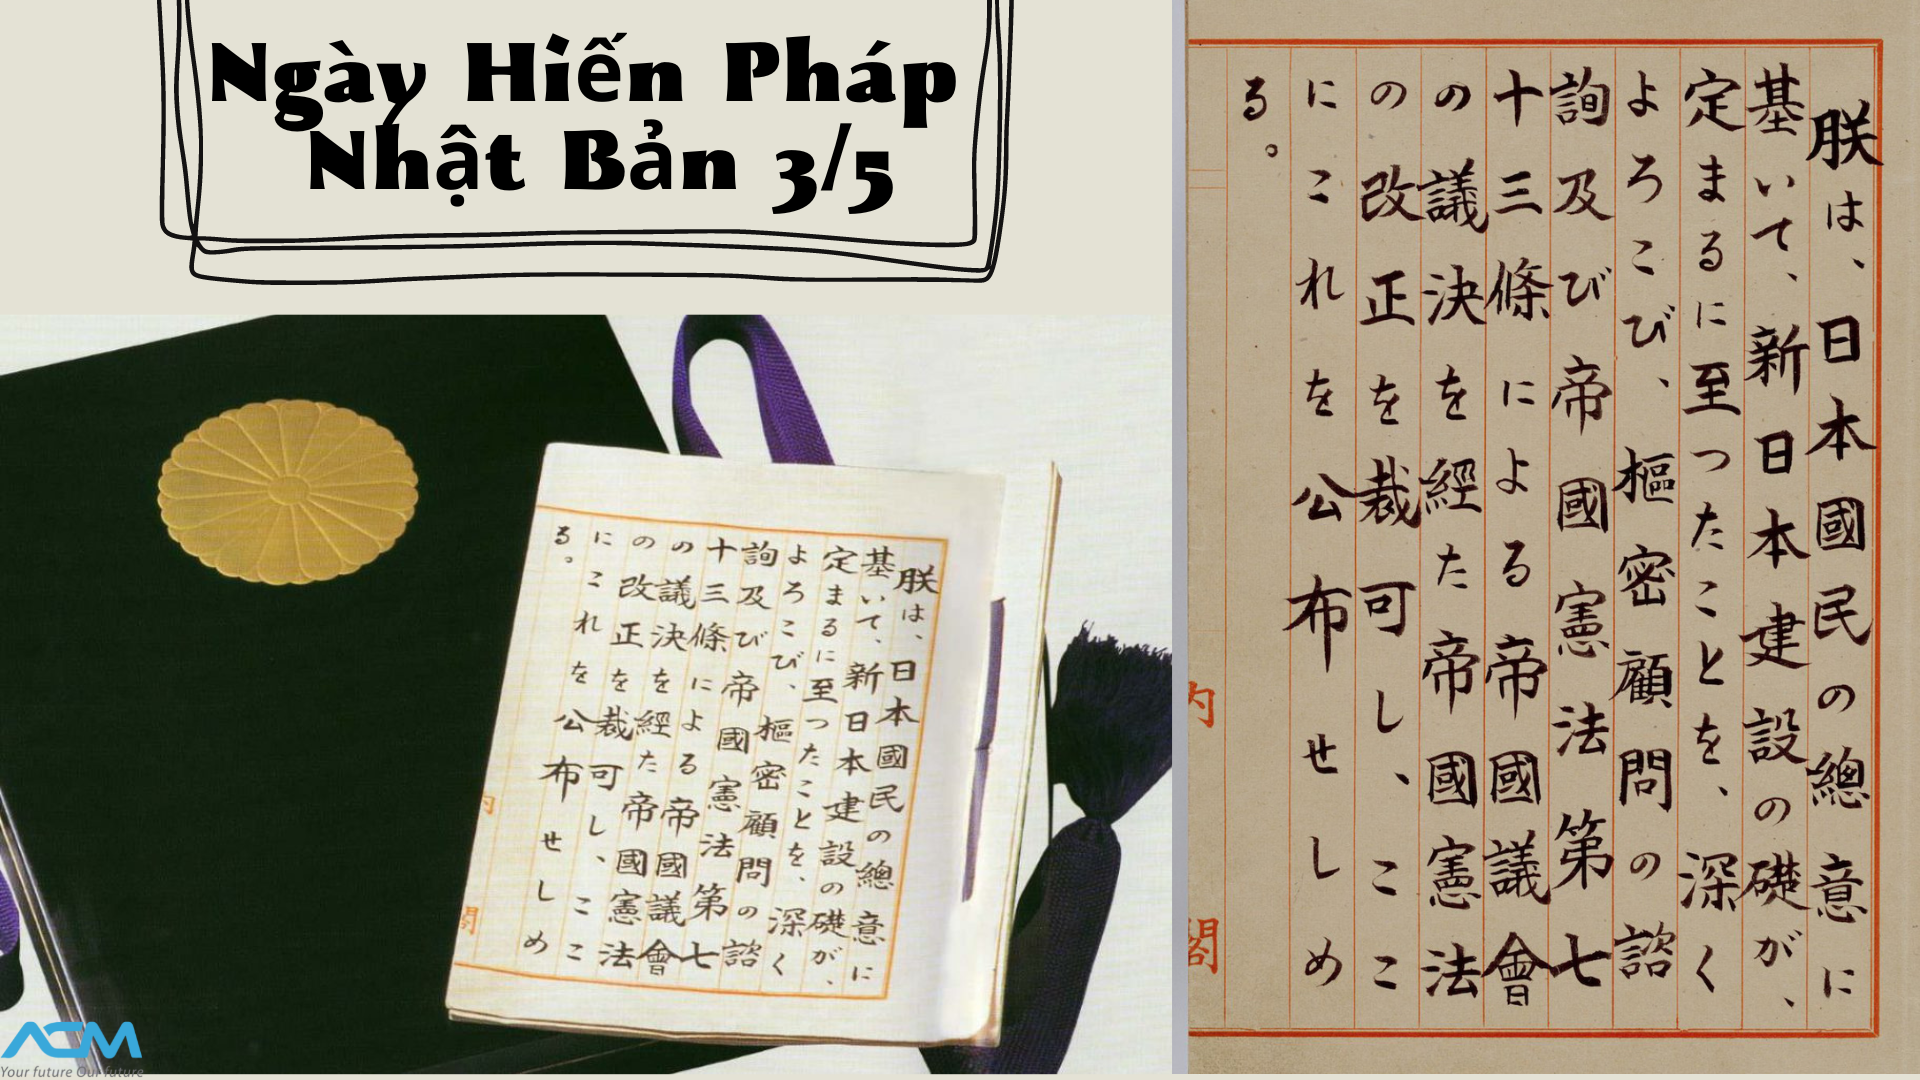 Ngày Hiến Pháp
Nhật Bản 3/5
朕は、日本國民の總意に
基いて、新日本建設の礎が、
定まるに至つたことを、深く
よろこび、樞密顧問の諮
詢及び帝國憲法第七
十三條による帝國議會
の議決を經た帝國憲法
の改正を裁可し、ここ
にこれを公布せしめ
る。
内
閣
朕は、日本國民の總意に
基いて、新日本建設の礎が、
定まるに至つたことを、深く
よろこび、樞密顧問の諮
詢及び帝國憲法第七
十三條による帝國議會
の議決を經た帝國憲法
の改正を裁可し、ここ
にこれを公布せしめ
る。
内
閣
ACM
Your future Our future